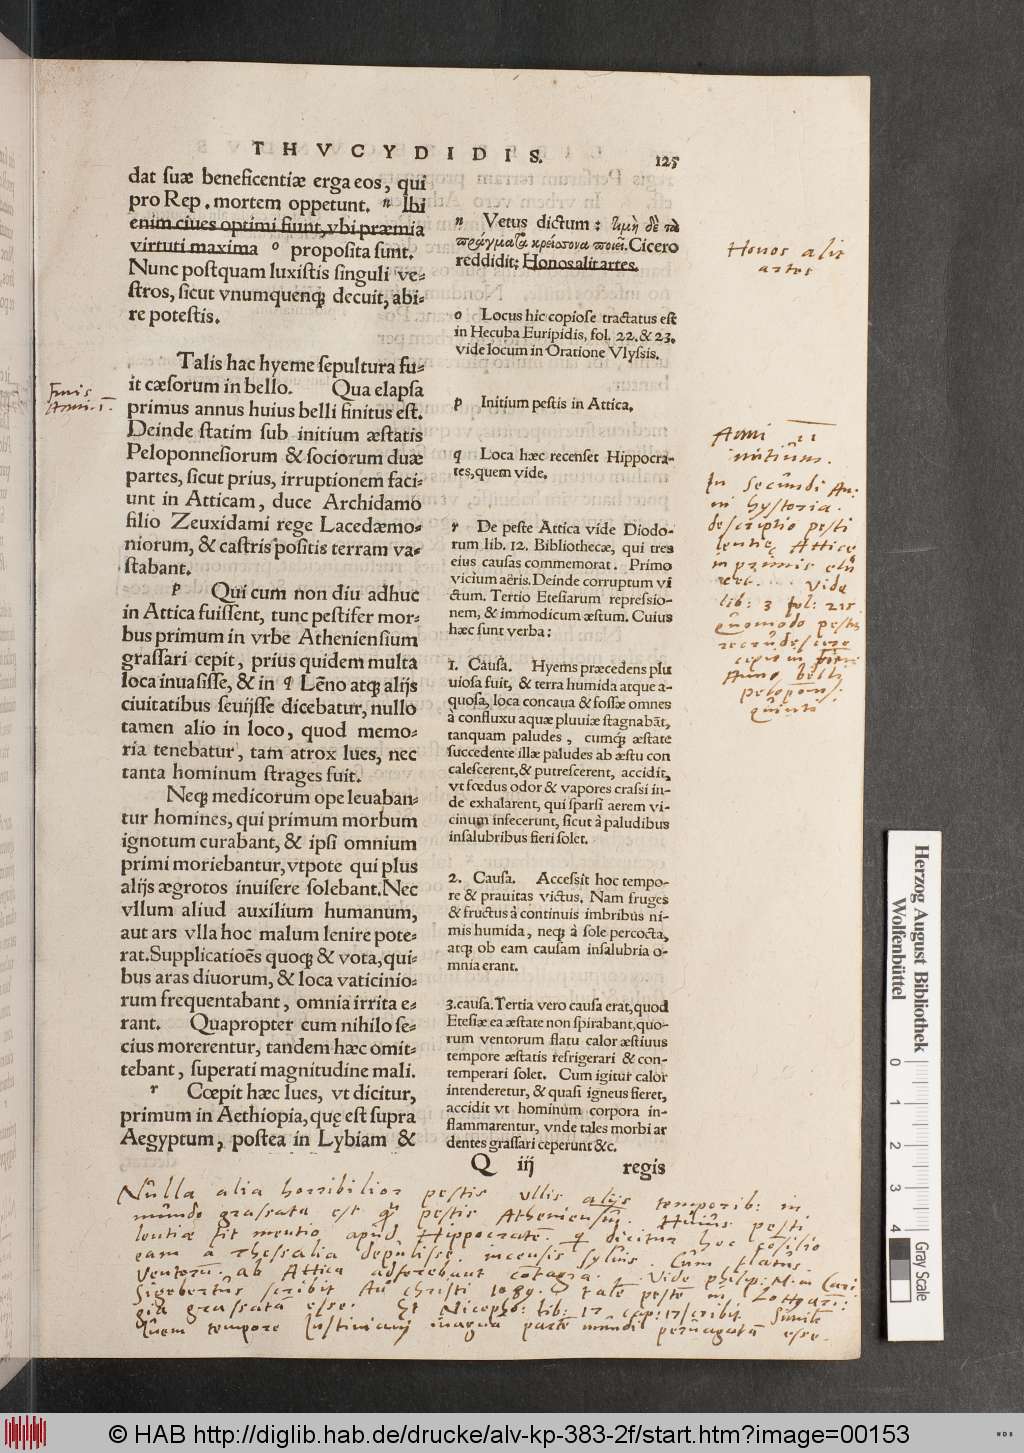 THVCYDIDIS.
125
dat suæ beneficentiæ erga eos, qui
pro Rep. mortem oppetunt. n Ibi
enim ciues optimi fiunt, vbi præmia
virtuti maxima o proposita sunt.
Nunc postquam luxistis singuli ve-
stros, sicut vnumquenq; decuit, abi-
re potestis.
Talis hac hyeme sepultura fu-
it cæsorum in bello. Qua elapsa
primus annus huius belli finitus est.
Deinde statim sub initium æstatis
Peloponnesiorum & sociorum duæ
partes, sicut prius, irruptionem faci-
unt in Atticam, duce Archidamo
filio Zeuxidami rege Lacedæmo-
niorum, & castris positis terram va-
stabant.
p Qui cum non diu adhuc
in Attica fuissent, tunc pestifer mor-
bus primum in vrbe Atheniensium
grassari cepit, prius quidem multa
loca inuasisse, & in q Lẽno atq; alijs
ciuitatibus seuijsse dicebatur, nullo
tamen alio in loco, quod memo-
ria tenebatur, tam atrox lues, nec
tanta hominum strages fuit.
Neq; medicorum ope leuaban-
tur homines, qui primum morbum
ignotum curabant, & ipsi omnium
primi moriebantur, vtpote qui plus
alijs ægrotos inuisere solebant. Nec
vllum aliud auxilium humanum,
aut ars vlla hoc malum lenire pote-
rat. Supplicatioẽs quoq; & vota, qui-
bus aras diuorum, & loca vaticinio-
rum frequentabant, omnia irrita e-
rant. Quapropter cum nihilo se-
cius morerentur, tandem hæc omit-
tebant, superati magnitudine mali.
r Cœpit hæc lues, vt dicitur,
primum in Aethiopia, quę est supra
Aegyptum, postea in Lybiam &
n Vetus dictum: τιμὴ δὲ τὰ
πράγματα κρείσσονα ποιεῖ. Cicero
reddidit: Honos alit artes.
o Locus hic copiose tractatus est
in Hecuba Euripidis, fol. 22. & 23.
vide locum in Oratione Vlyssis.
p Initium pestis in Attica.
q Loca hæc recenset Hippocra-
tes, quem vide.
r De peste Attica vide Diodo-
rum lib. 12. Bibliothecæ, qui tres
eius causas commemorat. Primo
vicium aëris. Deinde corruptum vi
ctum. Tertio Etesiarum repressio-
nem, & immodicum æstum. Cuius
hæc sunt verba:
1. Causa. Hyems præcedens plu
uiosa fuit, & terra humida atque a-
quosa, loca concaua & fossæ omnes
à confluxu aquæ pluuiæ stagnabãt,
tanquam paludes, cumq; æstate
succedente illæ paludes ab æstu con
calescerent, & putrescerent, accidit,
vt fœdus odor & vapores crassi in-
de exhalarent, qui sparsi aerem vi-
cinum infecerunt, sicut à paludibus
insalubribus fieri solet.
2. Causa. Accessit hoc tempo-
re & prauitas victus. Nam fruges
& fructus à continuis imbribus ni-
mis humida, neq; à sole percocta,
atq; ob eam causam insalubria o-
mnia erant.
3. causa. Tertia vero causa erat, quod
Etesiæ ea æstate non spirabant, quo-
rum ventorum flatu calor æstiuus
tempore æstatis refrigerari & con-
temperari solet. Cum igitur calor
intenderetur, & quasi igneus fieret,
accidit vt hominum corpora in-
flammarentur, vnde tales morbi ar
dentes grassari ceperunt &c.
Q iij
regis
Finis
Anni 1.
Honos alit
artes
Anni II
initium.
In secundi An:
ni hystoria
descriptio pesti
lentię Atticę
in primis
Vide
lib: 3 fol: 215
quomodo pestis
recrudescere
cepit in fine
Anno belli
pelopons:
quinto
Nulla alia horribilior pestis ullis alijs temporib: in
mundo grassata est quã pestis Atheniensiũ. Huius pesti
lentiæ fit mentio apud Hippocratẽ. q dicitur hoc cõsilio
eam à Thessalia depulisse, incensis syluis. Cum flatus
ventorũ ab Attica adferebant contagia. Vide philip: M. in Cari
Sigebertus scribit Aõ christi 1089. talẽ pestẽ in Lottharin:
gia grassatã esse. Et Nicepho: lib: 17 cap: 17 scribit. Similẽ
luem tempore Iustiniani magnã partẽ mundi peruagatã esse.
Herzog August Bibliothek
Wolfenbüttel
0 1 2 3 4
Gray Scale
© HAB http://diglib.hab.de/drucke/alv-kp-383-2f/start.htm?image=00153